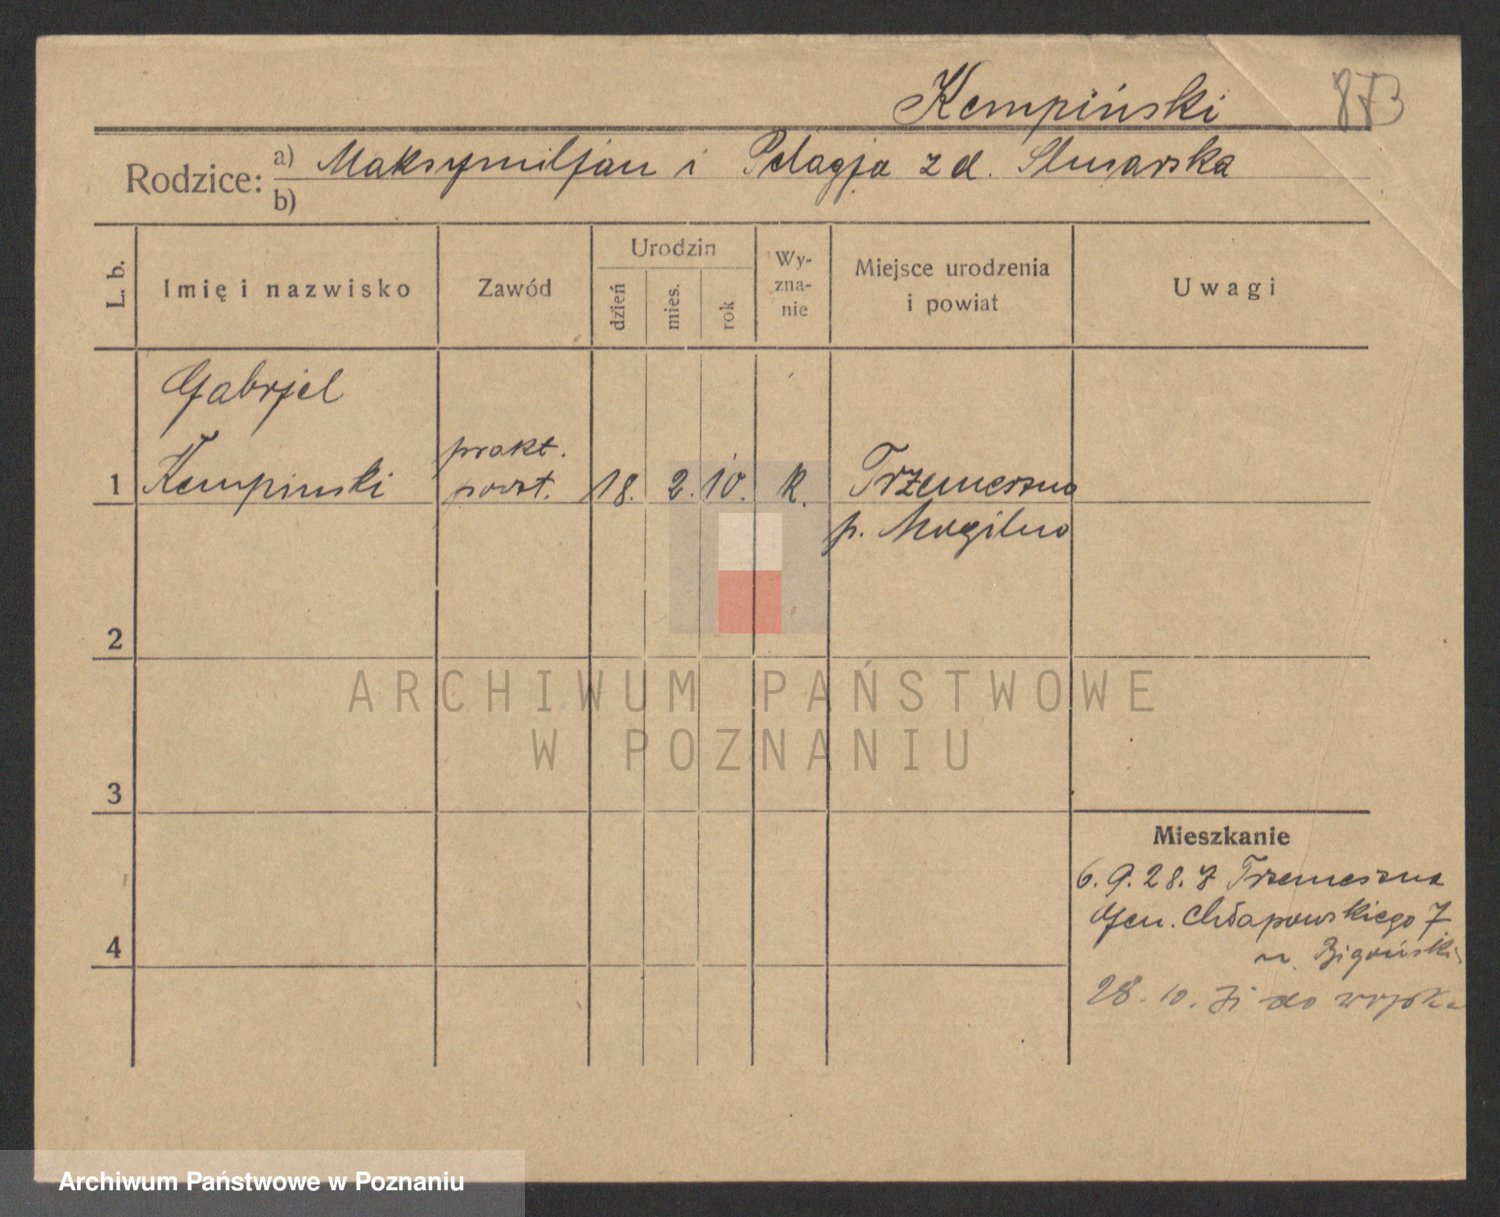 Kempiński 873
Rodzice: a) Maksymiljan i Pelagja z d. Slusarska
b)
L. b.
Imię i nazwisko
Zawód
Urodzin
dzień
mies.
rok
Wy-
zna-
nie
Miejsce urodzenia
i powiat
Uwagi
Gabrjel
prakt.
1 Kempinski poczt. 18. 2. 10. k. Trzemeszno
p. Mogilno
2
3
4
Mieszkanie
6. 9. 28. z Trzemeszna
Gen. Chłapowskiego 7
u
28. 10. 31 do wojska
ARCHIWUM PAŃSTWOWE
W POZNANIU
Archiwum Państwowe w Poznaniu